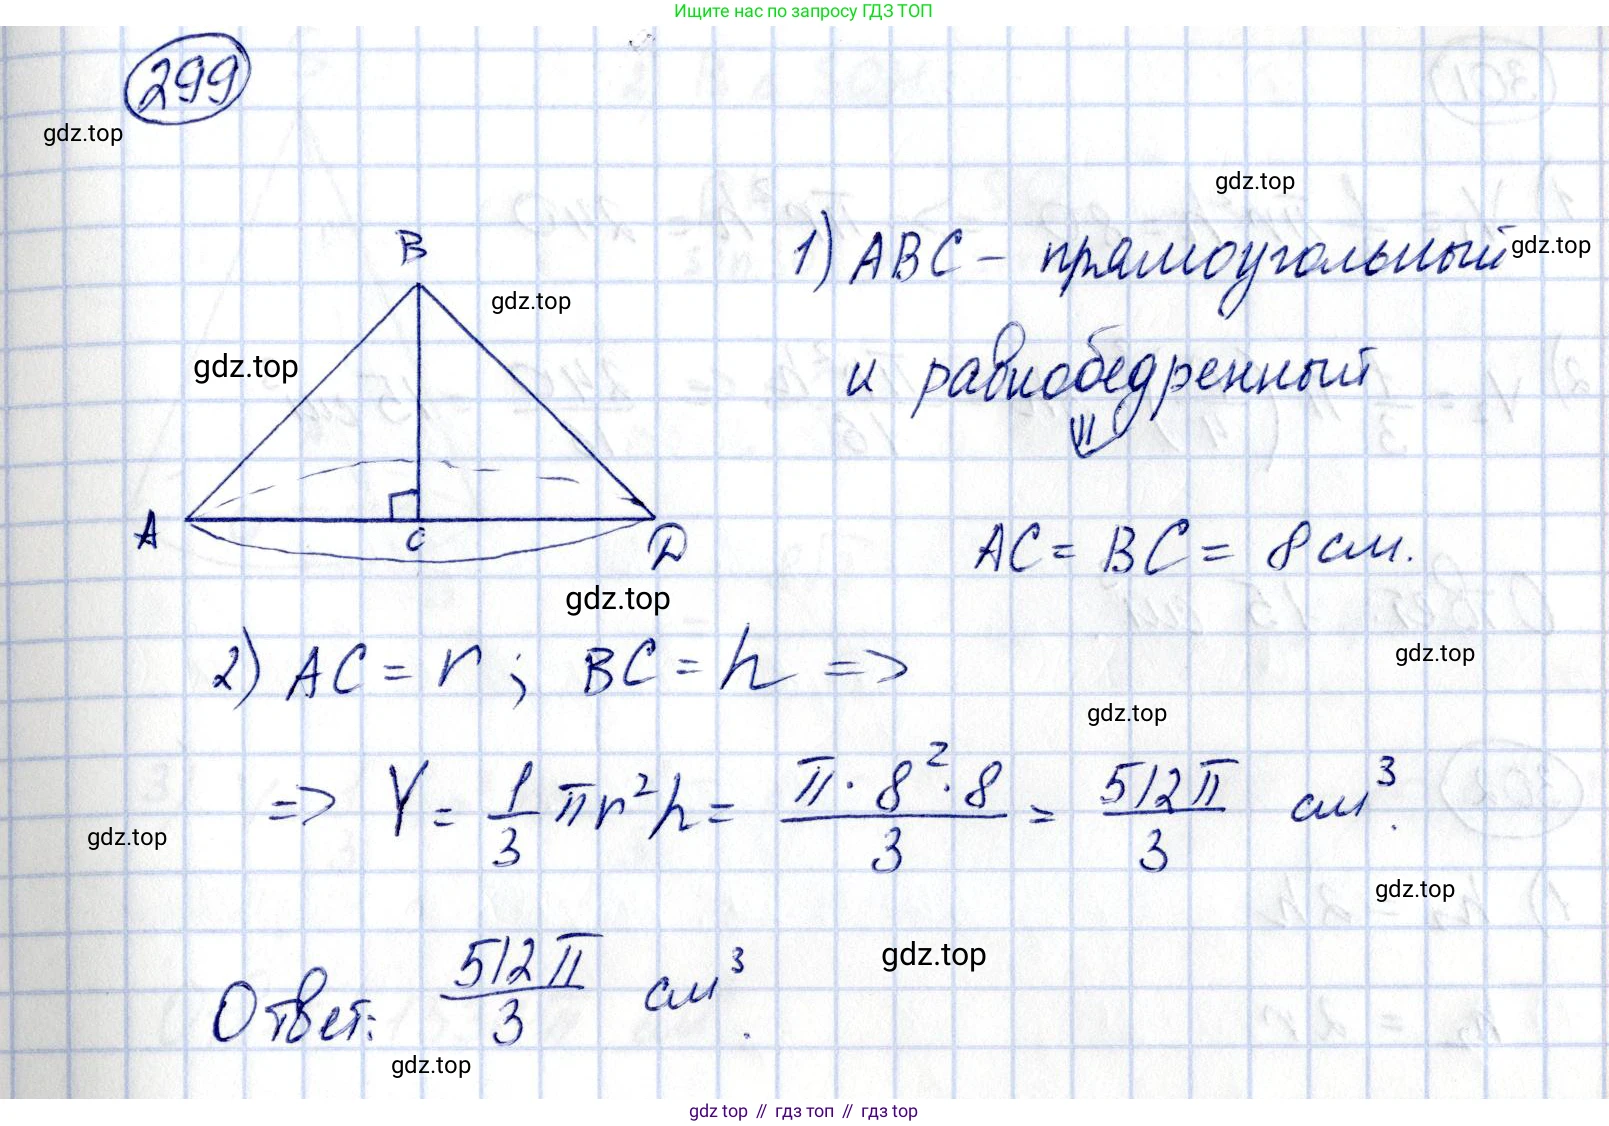 Ищите нас по запросу ГДЗ ТОП
299
gdz.top
gdz.top
1) ABC – прямоугольный
gdz.top
B
gdz.top
gdz.top
и равнобедренный
⇓
A
C
D
AC = BC = 8 см.
gdz.top
2) AC = r ; BC = h =>
gdz.top
gdz.top
=> V = 1/3 πr²h = π · 8² · 8 / 3 = 512π / 3 см³.
gdz.top
gdz.top
gdz.top
Ответ: 512π / 3 см³.
gdz.top
gdz top // гдз топ // гдз top